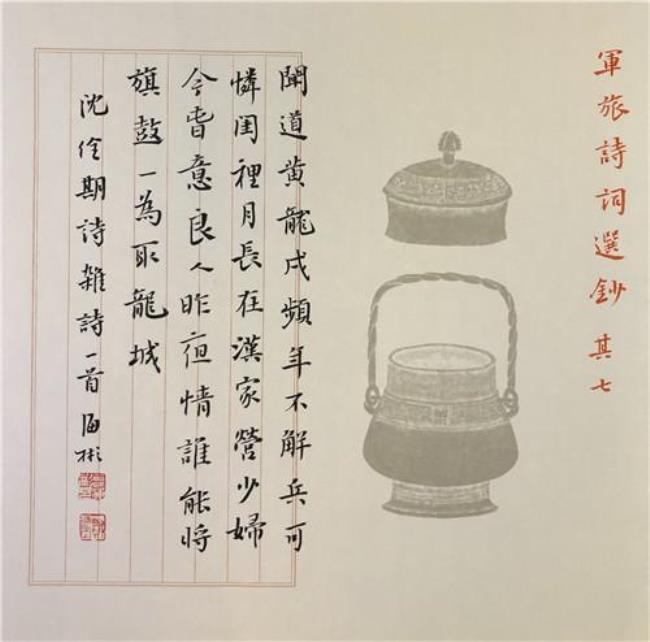 軍旅詩詞選鈔 其七
聞道黄龍戍頻年不解兵可
憐閨裡月長在漢家營少婦
今旾意良人昨夜情誰能將
旗鼓一為取龍城
沈佺期詩雜詩一首 海彬